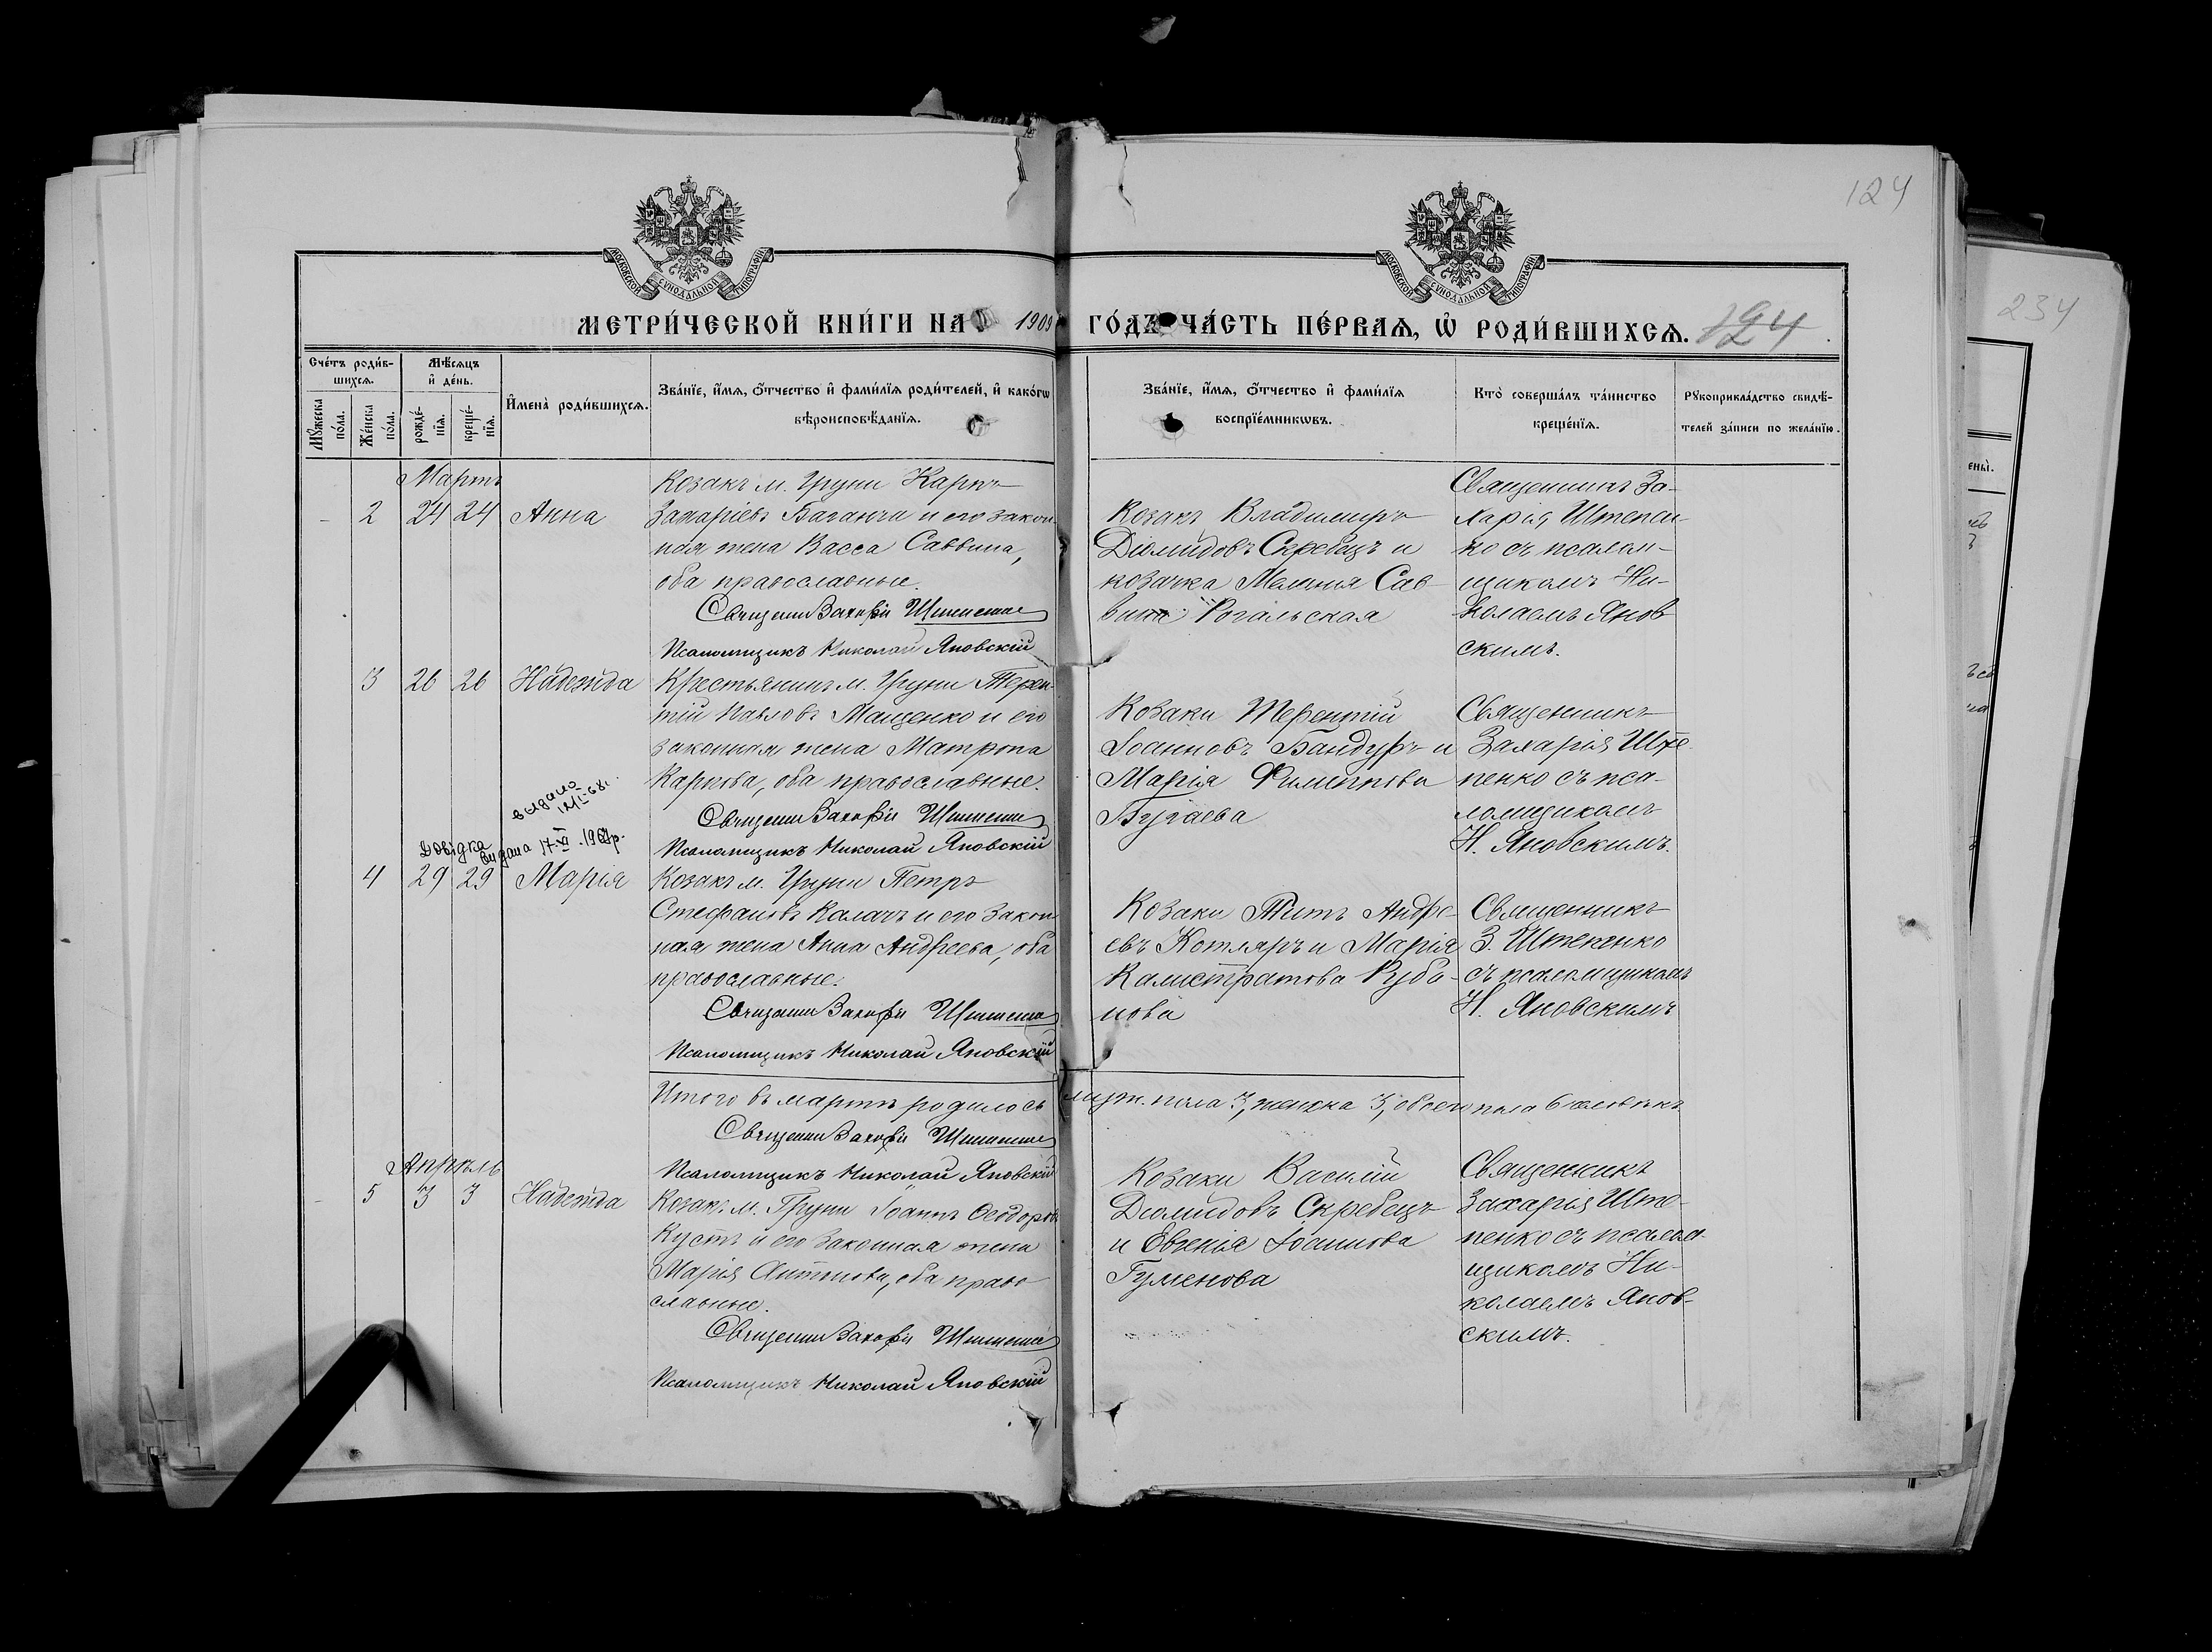 124
234
МОСКОВСКОЙ СУНОДАЛЬНОЙ ТИПОГРАФІИ
МОСКОВСКОЙ СУНОДАЛЬНОЙ ТИПОГРАФІИ
МЕТРИ́ЧЕСКОЙ КНИ́ГИ НА 1909 ГО́ДЪ ЧА́СТЬ ПЕ́РВАѦ, Ѡ҆ РОДИ́ВШИХСѦ. 124
Сче́тъ роди́в-
шихсѧ.
Мꙋ́жеска по́ла.
Же́нска по́ла.
Мѣ́сѧцъ
и҆ де́нь.
рожде́-
нїѧ.
креще́-
нїѧ.
И҆мена̀ роди́вшихсѧ.
Зва́нїе, и҆́мѧ, ѻ҆́тчество и҆ фами́лїѧ роди́телей, и҆ како́гѡ
вѣроисповѣ́данїѧ.
Зва́нїе, и҆́мѧ, ѻ҆́тчество и҆ фами́лїѧ
воспрїе́мникѡвъ.
Кто̀ соверша́лъ та́инство
креще́нїѧ.
Рꙋкоприкла́дство свидѣ́-
телей за́писи по жела́нїю.
Мартъ
2 24 24 Анна
Козакъ м. Груни Карпъ
Захаріевъ Ваганча и его закон-
ная жена Васса Саввина,
оба православные.
Священ Захарія Штепенко
Псаломщикъ Николай Яновскій
Козакъ Владимиръ
Діомидовъ Скребецъ и
козачка Меланія Сав-
вина Рогальская
Священникъ За-
харія Штепен-
ко съ псалом-
щикомъ Ни-
колаемъ Янов
скимъ.
3 26 26 Надежда
Крестьянинъ м. Груни Терен-
тій Павловъ Мащенко и его
законная жена Матрона
Карпова, оба православные.
Священ Захарія Штепенко
Псаломщикъ Николай Яновскій
Козаки Терентій
Іоанновъ Бандуръ и
Марія Филиппова
Бугаева
Священникъ
Захарія Ште
пенко съ пса-
ломщикомъ
Н. Яновскимъ.
видано
Довідка
видана 17 XI.
4 29 29 Марія
Козакъ м. Груни Петръ
Стефановъ Калачъ и его закон
ная жена Анна Андреева, оба
православные.
Священ Захарія Штепенко
Псаломщикъ Николай Яновскій
Козаки Титъ Андре-
евъ Котляръ и Марія
Калистратова Руба-
нова
Священникъ
З. Штепенко
съ псаломщикомъ
Н. Яновскимъ
Итого въ мартѣ родилось муж. пола 3, женска 3, обоего пола 6 человѣкъ
Священ Захарія Штепенко
Псаломщикъ Николай Яновскій
Апрѣль
5 3 3 Надежда
Козакъ м. Груни Іоаннъ Феодоровъ
Кустъ и его законная жена
Марія Антонова, оба право
славные.
Священ Захарія Штепенко
Псаломщикъ Николай Яновскій
Козаки Василій
Діомидовъ Скребецъ
и Евгенія Іоаннова
Гуменова
Священникъ
Захарія Ште-
пенко съ псалом-
щикомъ Ни-
колаемъ Янов-
скимъ.